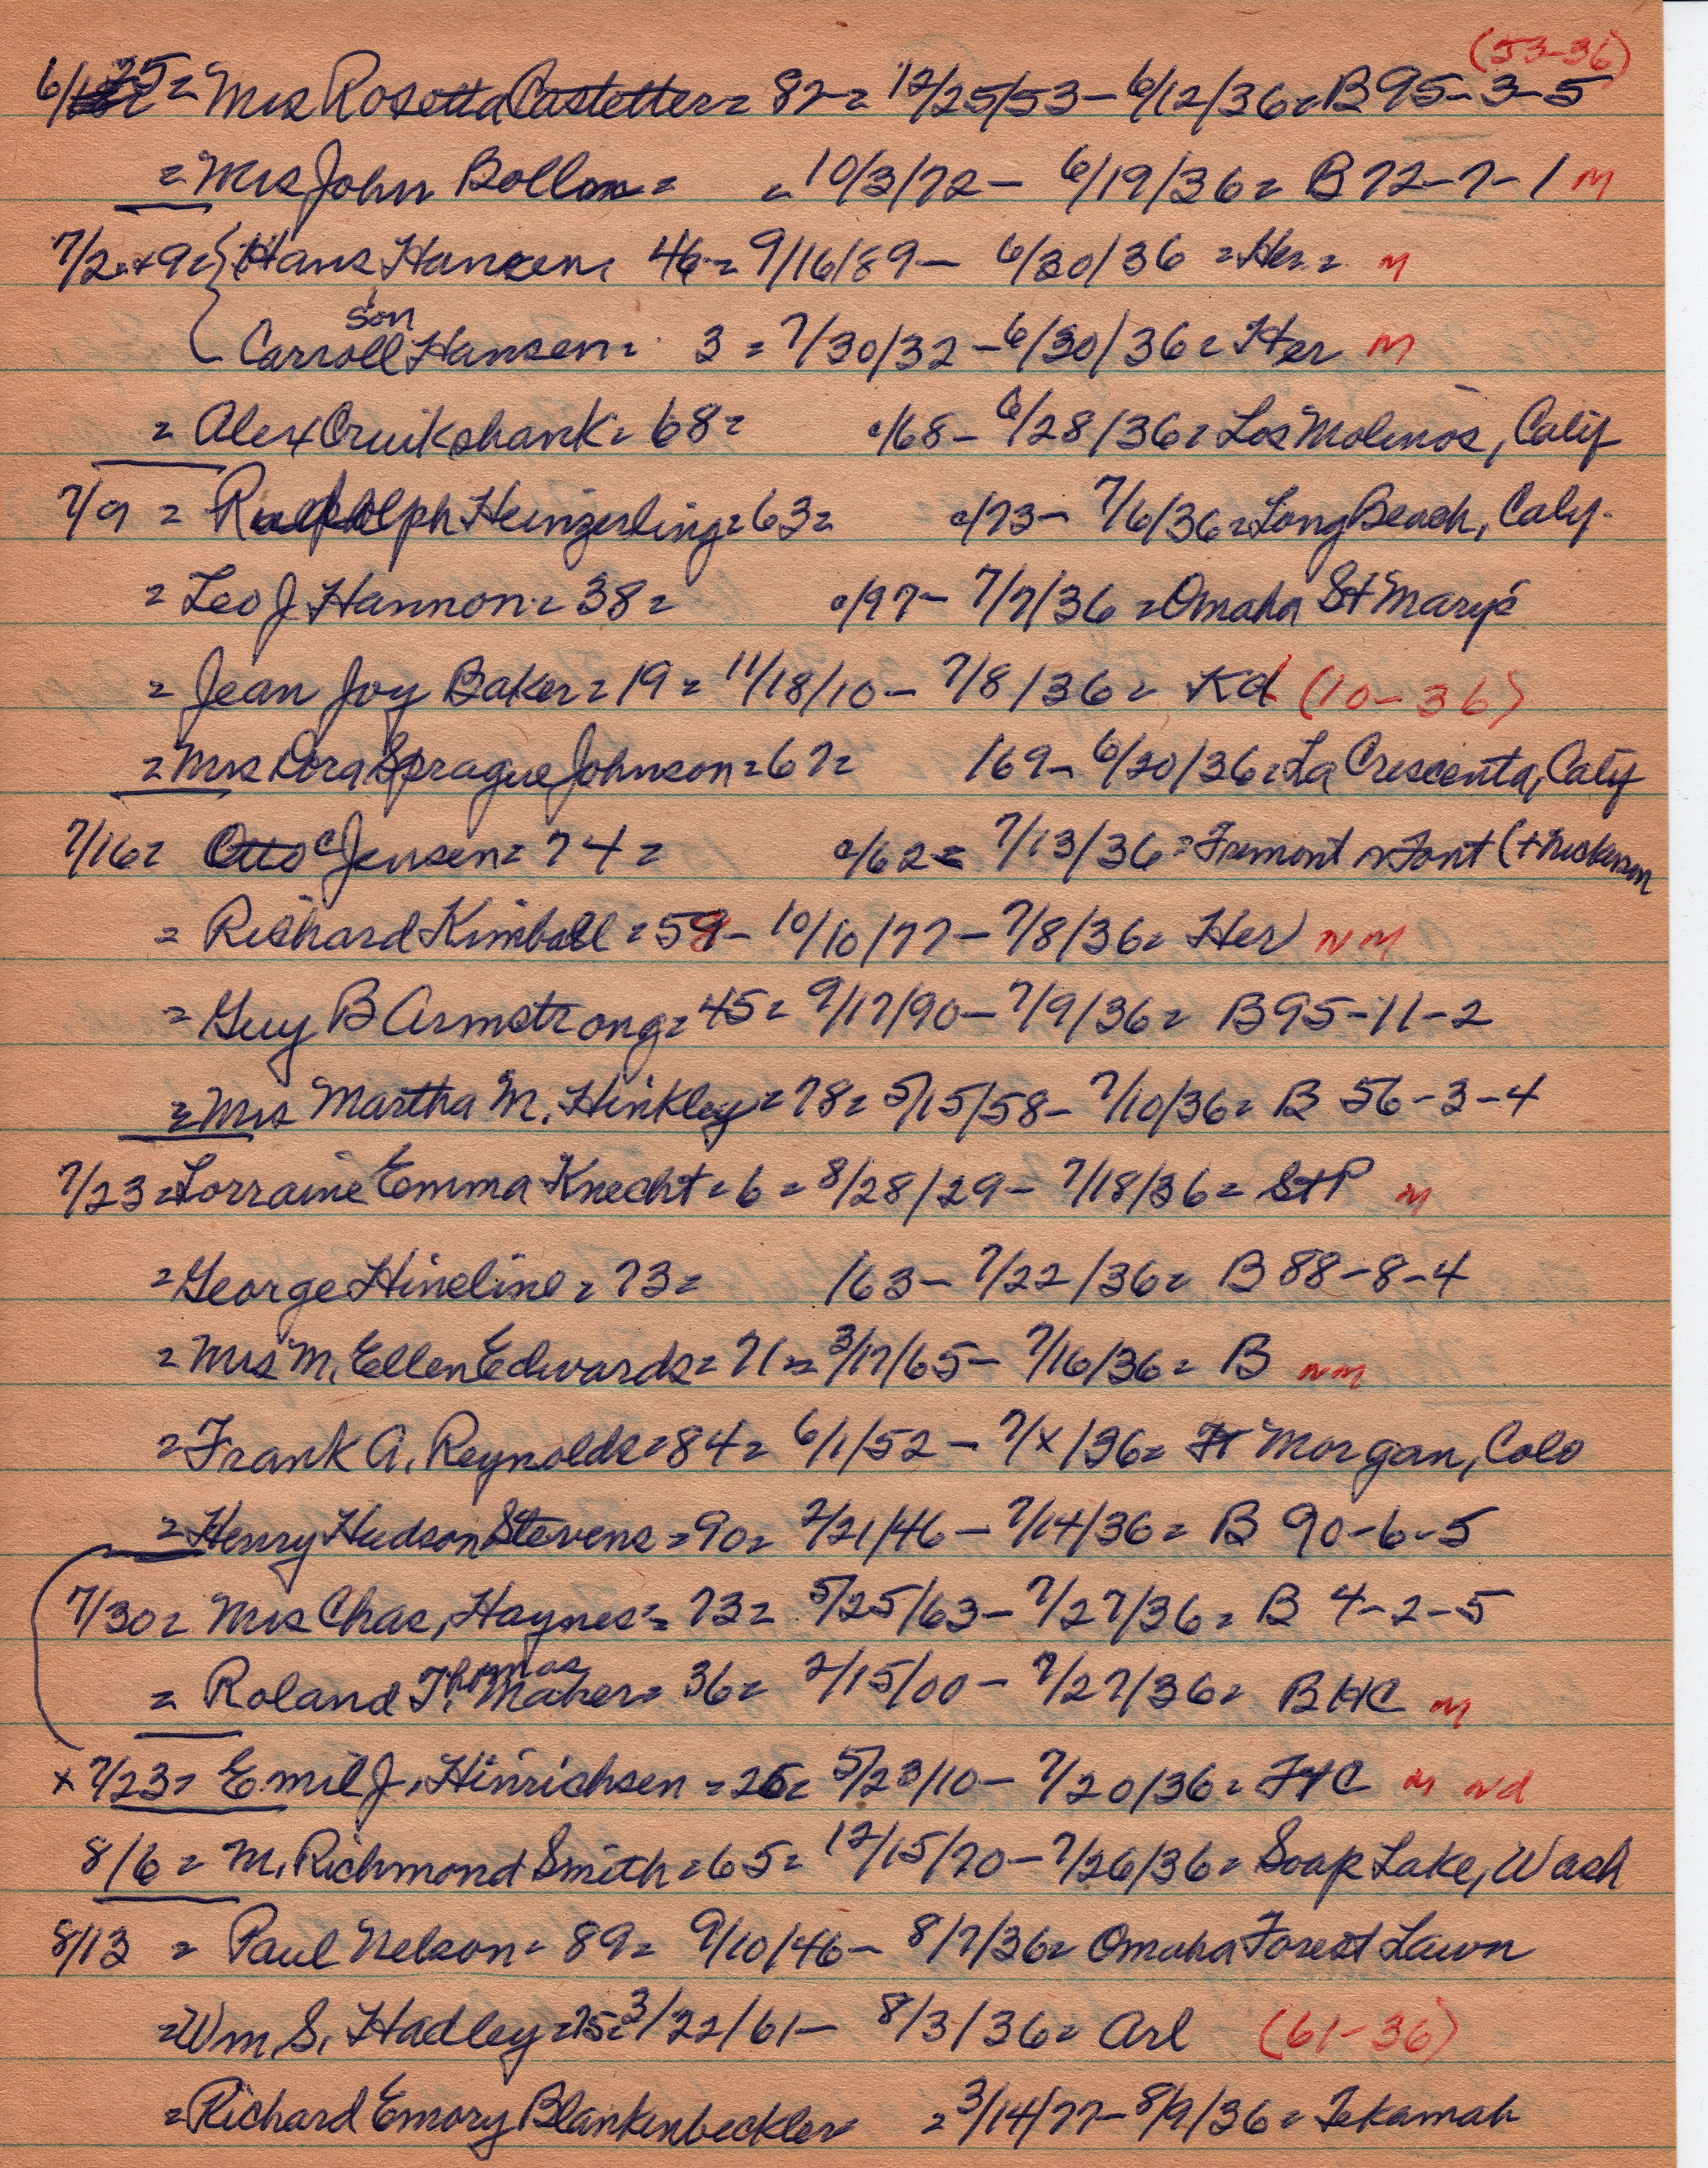 (53-36)
6/25 = Mrs Rosetta Castetter = 82 = 12/25/53 - 6/12/36 = B 95-3-5
= Mrs John Bollon = = 10/3/72 - 6/19/36 = B 72-7-1 M
7/2 + 9 = { Hans Hansen, 46 = 9/16/89 - 6/30/36 = Her = M
son
{ Carroll Hansen = 3 = 7/30/32 - 6/30/36 = Her M
= Alex Cruikshank = 68 = c/68 - 6/28/36 = Los Molinos, Calif
7/9 = Rudolph Heinzerling = 63 = c/73 - 7/6/36 = Long Beach, Calif.
= Leo J Hannon = 38 = c/97 - 7/7/36 = Omaha St Mary's
= Jean Joy Baker = 19 = 11/18/10 - 7/8/36 = Kd (10-36)
= Mrs Dora Sprague Johnson = 67 = /69 - 6/20/36 = La Crescenta, Calif
7/16 = Otto C Jensen = 74 = c/62 = 7/13/36 = Fremont (+ Nickerson
= Richard Kimball = 59 - 10/10/77 - 7/8/36 = Her NM
= Guy B Armstrong = 45 = 9/17/90 - 7/9/36 = B 95-11-2
= Mrs Martha M. Hinkley = 78 = 5/15/58 - 7/10/36 = B 56-3-4
7/23 = Lorraine Emma Knecht = 6 = 8/28/29 - 7/18/36 = St P M
= George Hineline = 73 = /63 - 7/22/36 = B 88-8-4
= Mrs M. Ellen Edwards = 71 = 3/17/65 - 7/16/36 = B NM
= Frank A. Reynolds = 84 = 6/1/52 - 7/x/36 = Ft Morgan, Colo
= Henry Hudson Stevens = 90 = 2/21/46 - 7/14/36 = B 90-6-5
7/30 = Mrs Chas, Haynes = 73 = 5/25/63 - 7/27/36 = B 4-2-5
= Roland Thomas Maher = 36 = 2/15/00 - 7/27/36 = BHC M
x 7/23 = Emil J. Hinrichsen = 26 = 5/23/10 - 7/20/36 = FYC M Nd
8/6 = M. Richmond Smith = 65 = 12/15/70 - 7/26/36 = Soap Lake, Wash
8/13 = Paul Nelson = 89 = 9/10/46 - 8/7/36 = Omaha Forest Lawn
= Wm. S. Hadley = 75 = 3/22/61 - 8/3/36 = Arl (61-36)
= Richard Emory Blankenbeckler = 3/14/77 - 8/9/36 = Tekamah